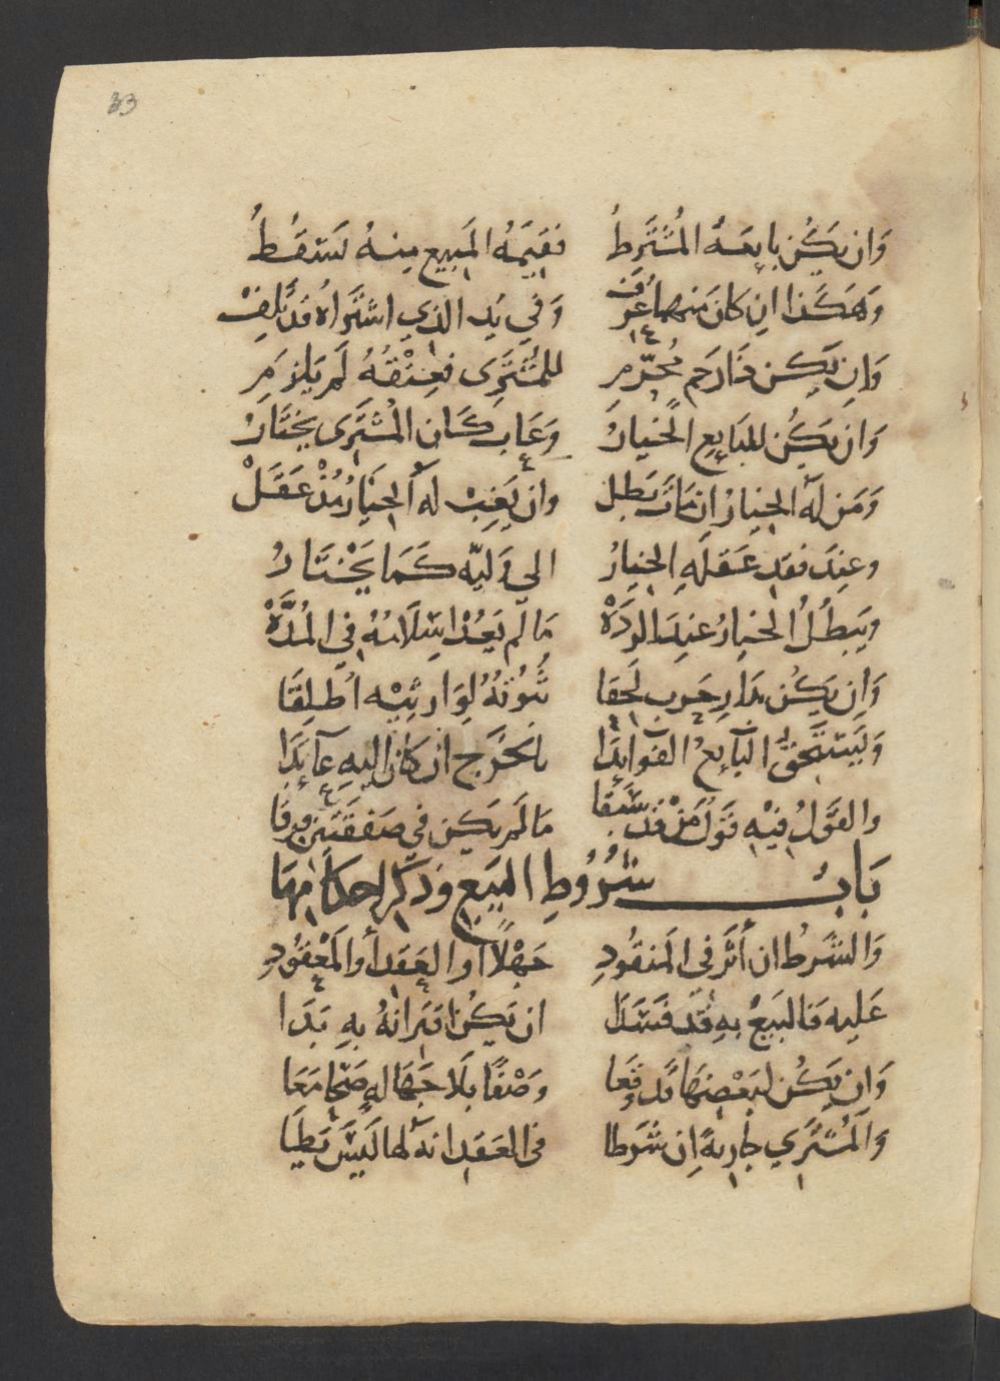 33
وَان يَكُن بايعَهُ المُشتَرِطُ فقيمَةُ المَبيع مِنهُ تَسْقُطُ
وَهَكَذا ان كانَ منهما عُرِفْ وَفي يَدِ الذي اشتَراهُ قد تَلِفْ
وَان يَكن ذا رَحِم مُحرَّمِ للمُشتَرِى فعِتْقُهُ لَم يَلزَمِ
وَان يَكُن للبَايعِ الخيارُ وَعَابَ كَان المُشتَرِى يَختَارُ
وَمَن لَهُ الخيارُ ان مَاتَ بَطَل وان يَغِبْ لَه الخِيَارُ مُذْ عَقَلْ
وعِندَ فقدِ عَقلهِ الخيارُ الى وَلِيّه كَمَا يَخْتَارُ
ويَبطُلُ الخيارُ عندَ الرِدَّهْ مَا لَم يَعُدْ اسْلَامُهُ في المُدَّهْ
وَان يَكُن بدَارِ حَربٍ لَحِقَا ثُبُوتُهُ لِوَارِثِيْه اُطلِقَا
وَيَستَحِقُّ البَايعُ الفَوايدَا بالخَرْج ان كان اليهِ عَايدَا
والقَوْلُ فيْهِ قَولُ مَنْ قد سَبَقا مَا لَم يَكن في صَفقَتَين فرقَا
بَابُ شُرُوطِ البَيع وذكر احكامها
وَالشرطُ ان أثّرَ في المَنقُودِ جَهْلًا او العَقد أو المَعْقُودِ
عَليه فالبَيعُ بهِ قد فَسَدَا ان يَكُن اقتِرانُهُ بهِ بَدَا
وَان يَكُن لبَعْضِهَا قد رَفَعَا وَصْفًا بلَا جَهَالهٍ صَحَّا مَعَا
وَالمُشتَري جاريةً إن شَرَطا في العَقدِ انهُ لها لَيسَ يَطَا